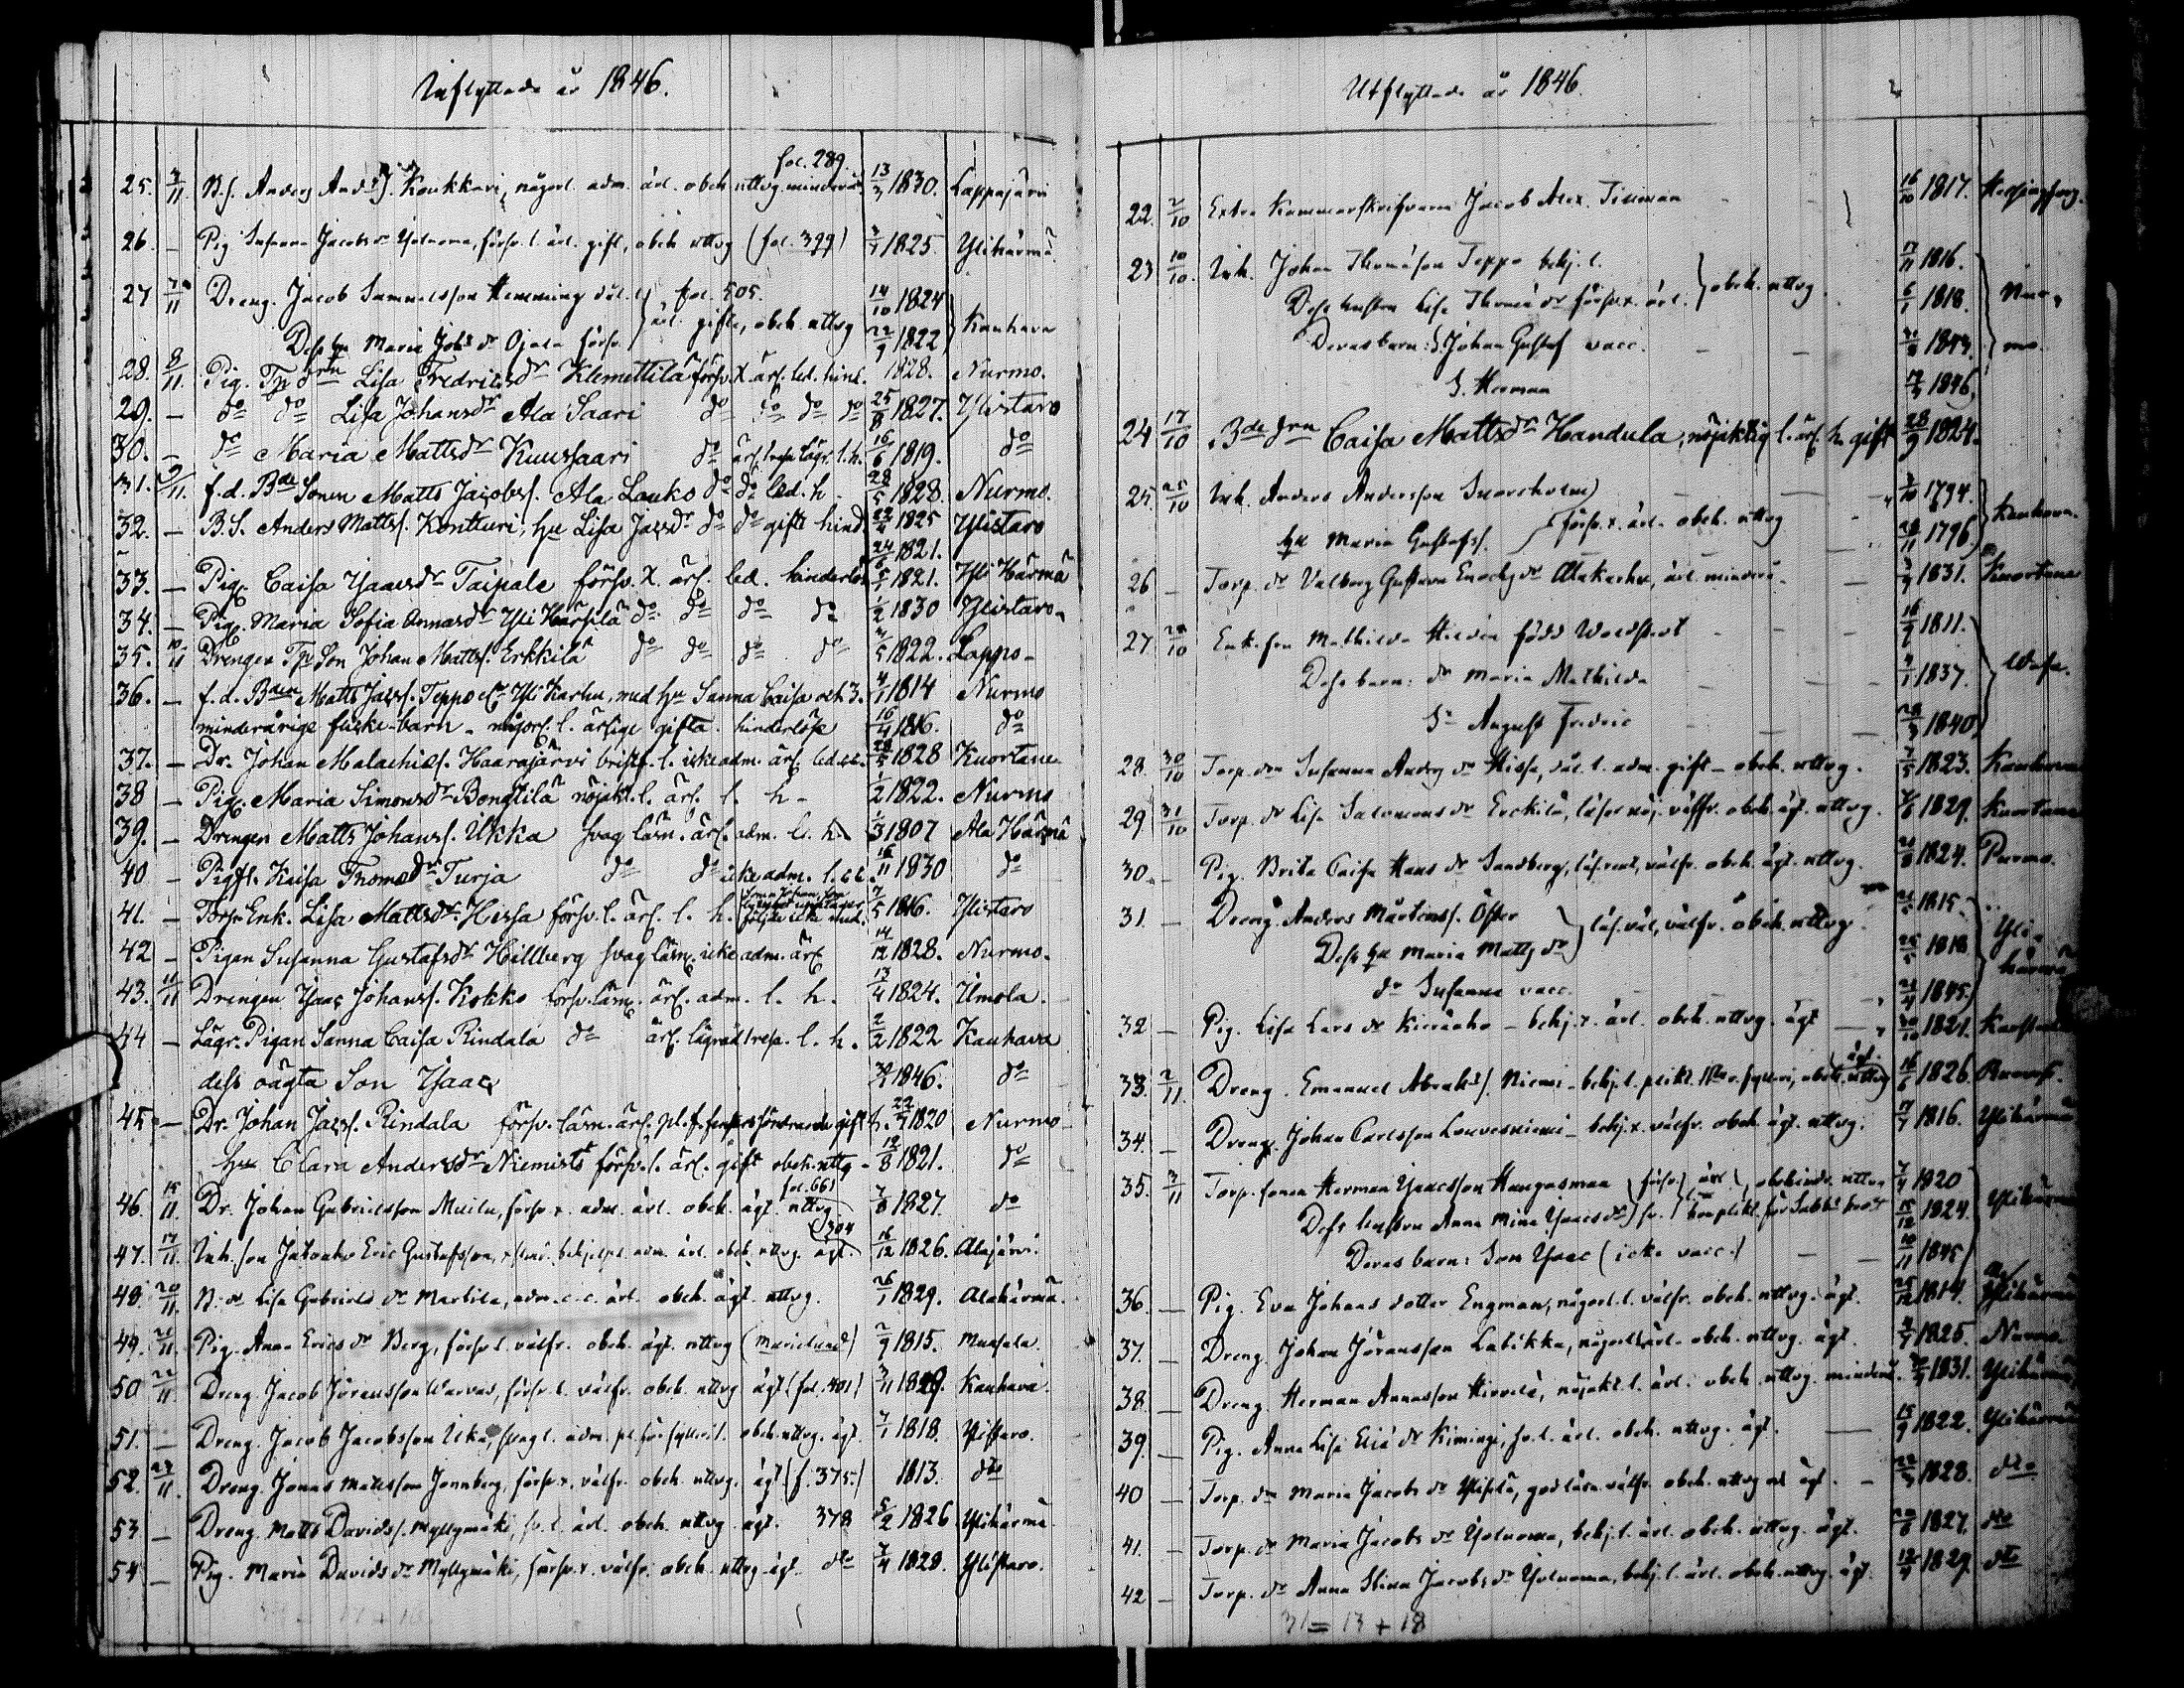 Inflyttade år 1846.
fol. 289.
25. 7/11 B.s. Anders And:s s. Koukkari, någorl. adm. ärl. obeh. nttvg. minderår. 13/3 1830. Lappajärvi
26. — Pig. Susanna Jacobs dr Yolnoma, försv. l. ärl. gift, obeh. nttvg (fol. 399) 1825 Ylihärmä
27 7/11 Dreng. Jacob Samuelsson Hemming fol. 505. 14/10 1824
ärl. gifta, obeh. nttvg Kauhava
Dess hu Maria Johs dr Ojala försv. 22/9 1822
28. 8/11. Pig. Tp drn Lisa Fredricsdr Klemettilä försv. X ärl. led. hind. 1828. Nurmo.
29. — do do Lisa Johansdr Ala Saari do do do do 25/8 1827. Ylistaro
30. — do Maria Mattsdr Kuussaari do 16/6 1819. do
31. 9/11. f.d. Bde Sonen Matts Jacobss. Ala Lauko do do led. h 28/5 1828. Nurmo.
32. — B.S. Anders Mattss. Kontturi, hu Lisa Jacsdr do do gifte hind 22/2 1825 Ylistaro
24/6 1821.
33. — Pig. Caisa Isaacsdr Taipale försv. X. ärl. led. hinderlös 5/1 1821. Yli Härmä
34. — Pig. Maria Sofia Annasdr Yli Harsilä do do do do 1/2 1830 Ylistaro
35. 10/11 Drengen Tp Son Johan Mattss. Erkkilä do do do do 1822. Lappo
36. — f.d. Bden Matts Jacss. Teppo Yli Karhu, med hu Sanna Caisa och 3. 4/1 1814 Nurmo
minderårige flicke-barn. någorl. l. ärlige gifta hinderlösa 16/4 1816. do
37. — Dr. Johan Malachiæs. Haarajärvi bristf. l. icke adm. ärl. led. 28/5 1828 Kuortane
38 — Pig. Maria Simonsdr Bengtilä nöjakt. l. ärl. l. h 1/2 1822. Nurmo
39. — Drengen Matts Johanss. Ukka svag läsn. ärl. adm. l. h. 1/3 1807 Ala Härmä
40 — Pigfl. Kaisa Thomsdr Turja do do icke adm. 16/11 1830 do
41. — Torp Enk. Lisa Mattsdr Hissa försv. l. ärl. l. h. 7/5 1816. Ylistaro
42 — Pigan Susanna Gustafsdr Hillberg svag läsn. icke adm. ärl. 14/12 1828. Nurmo.
43. 11/11 Drengen Isaac Johanss. Kokko försv. läsn. ärl. adm. l. h. 13/4 1824. Ilmola.
44 — Lägr. Pigan Sanna Caisa Rindala do ärl. l. h. 2/2 1822 Kauhava
dess oägta Son Isaac 1846. do
45 — Dr. Johan Jacss. Rindala försv. läsn. ärl. gift 1820 Nurmo
hu Clara Andersdr Niemistö försv. l. ärl. gift obeh. nttg. 12/8 1821. do
fol. 661
46. 15/11. Dr. Johan Gabrielsson Muilu, försv. x. adm. ärl. obeh. ägt. nttvg 7/8 1827. do
304
47. 17/11. Inh. son Jakoaho Eric Gustafsson, adm. ärl. obeh. nttvg. ägt. 16/12 1826. Alajärvi.
48. 20/11. B. dr Lisa Gabriels dr Martila, adm. c. c. ärl. obeh. ägt. nttvg. 26/1 1829. Alahärmä.
49. 21/11. Pig. Anna Erics dr Berg, försv. l. välfr. obeh. ägt. nttvg (Marielund) 2/9 1815. Munsala.
50 22/11. Dreng. Jacob Jöransson Warvas, försv. l. välfr. obeh. nttvg ägt (fol. 401) 3/11 1829. Kauhava.
51. — Dreng. Jacob Jacobsson Ukko, svag l. adm. pl. för fylleri. obeh. nttvg. ägt. 7/1 1818. Ylistaro.
52. 27/11. Dreng. Jonas Mattsson Jonnberg, försv. x. välfr. obeh. nttvg. ägt (f. 375.) 1813. dto
53 — Dreng. Matts Davidss. Myllymäki, fv. l. ärl. obeh. nttvg ägt. 378 5/2 1826 Ylihärmä.
54 — Pig. Maria Davids dr Myllymäki, försv. x. välfr. obeh. nttvg ägt. dto 7/4 1828. Ylistaro.
Utflyttade år 1846.
22. 2/10 Extra Kammarskrifvaren Jacob Alex. Tillman 16/10 1817. Helsingfors.
23 10/10. Inh. Johan Thomasson Teppo behj. l. 17/11 1816.
Dess hustru Lisa Thoma dr försv. x. ärl. obeh. nttvg. 6/1 1818. Nur-
Deras barn: S. Johan Gustaf vacc. 1843. mo.
S. Herman 1846.
24 17/10 Bde drn Caisa Mattsdr Handula, nöjaktig l. ärl. h. gift 28/9 1824.
25 25/10 Inh. Anders Andersson Snorcholm 1794.
försv. x. ärl. obeh. nttvg Kauhava.
hu Maria Gustafss. 1796
26 — Torp. dr Valborg Gustava Enochs dr Alakarhu, ärl. minderå. 1831. Kuortane
27. 28/10 Enk. fru Mathilda Helén född Woldstedt 16/7 1811.
Dess barn: dr Maria Mathilda 4/1 1837. Wasa.
Sn August Fredric 1840
28. 30/10 Torp. drn Susanna Anders dr Hissa, väl l. adm. gift obeh. nttvg. 7/5 1823. Kauhava
29 31/10 Torp. dr Lisa Salomons dr Erckilä, läser nöj. välfr. obeh. ägt. nttvg. 1829. Kuortane
30. — Pig. Brita Caisa Hans dr Sandberg, läs. rent, välfr. obeh. ägt. nttvg. 1824. Purmo.
31 — Dreng. Anders Mårtenss. Öster 1815.
läs. väl, välfr. obeh. nttvg. Yli-
Dess hu Maria Matts dr 25/5 1818 härmä
dr Susanna vacc. 21/4 1845.
32 — Pig. Lisa Lars dr Kieriaho behj. x. ärl. obeh. nttvg. ägt 1821. Karstula
ägt.
33. 2/11. Dreng. Emanuel Abrahs s. Niemi behj. l. plikt. fylleri, obeh. nttvg 16/6 1826.
34. — Dreng. Johan Carlsson Louvesniemi behj. x. välfr. obeh. ägt. nttvg. 17/7 1816. Ylihärmä
35. 3/11 Torp. sonen Herman Isacsson Haugasmaa försv. ärl. nttvg 7/4 1820
Dess hustru Anna Mina Isaacs dr 15/12 1824. Ylihärmä
Deras barn: Son Isaac (icke vacc.) 10/11 1845
36. — Pig. Eva Johans dotter Engman, någorl. l. välfr. obeh. nttvg. ägt. 25/12 1819. Ylihärmä
37. — Dreng. Johan Jöransson Labikka, någorl. ärl. obeh. nttvg. ägt. 1825. Nurmo.
38 — Dreng Herman Annasson Hirvelä, nöjakt. l. ärl. obeh. nttvg. minderå. 1831. Ylihärmä
39. — Pig. Anna Lisa Eliæ dr Kiminge, fv. l. ärl. obeh. nttvg. ägt. 15/9 1822. Ylihärmä
40 — Torp. dr Maria Jacobs dr Ylisilä, god läsn. välfr. obeh. nttvg ägt. 22/3 1828. dto
41. — Torp. dr Maria Jacobs dr Yolnoma, behj. l. ärl. obeh. nttvg. ägt. 1827. dto
42 — Torp. dr Anna Stina Jacobs dr Yolnoma, behj. l. ärl. obeh. nttvg. ägt. 1829. dto
31 = 13 + 18